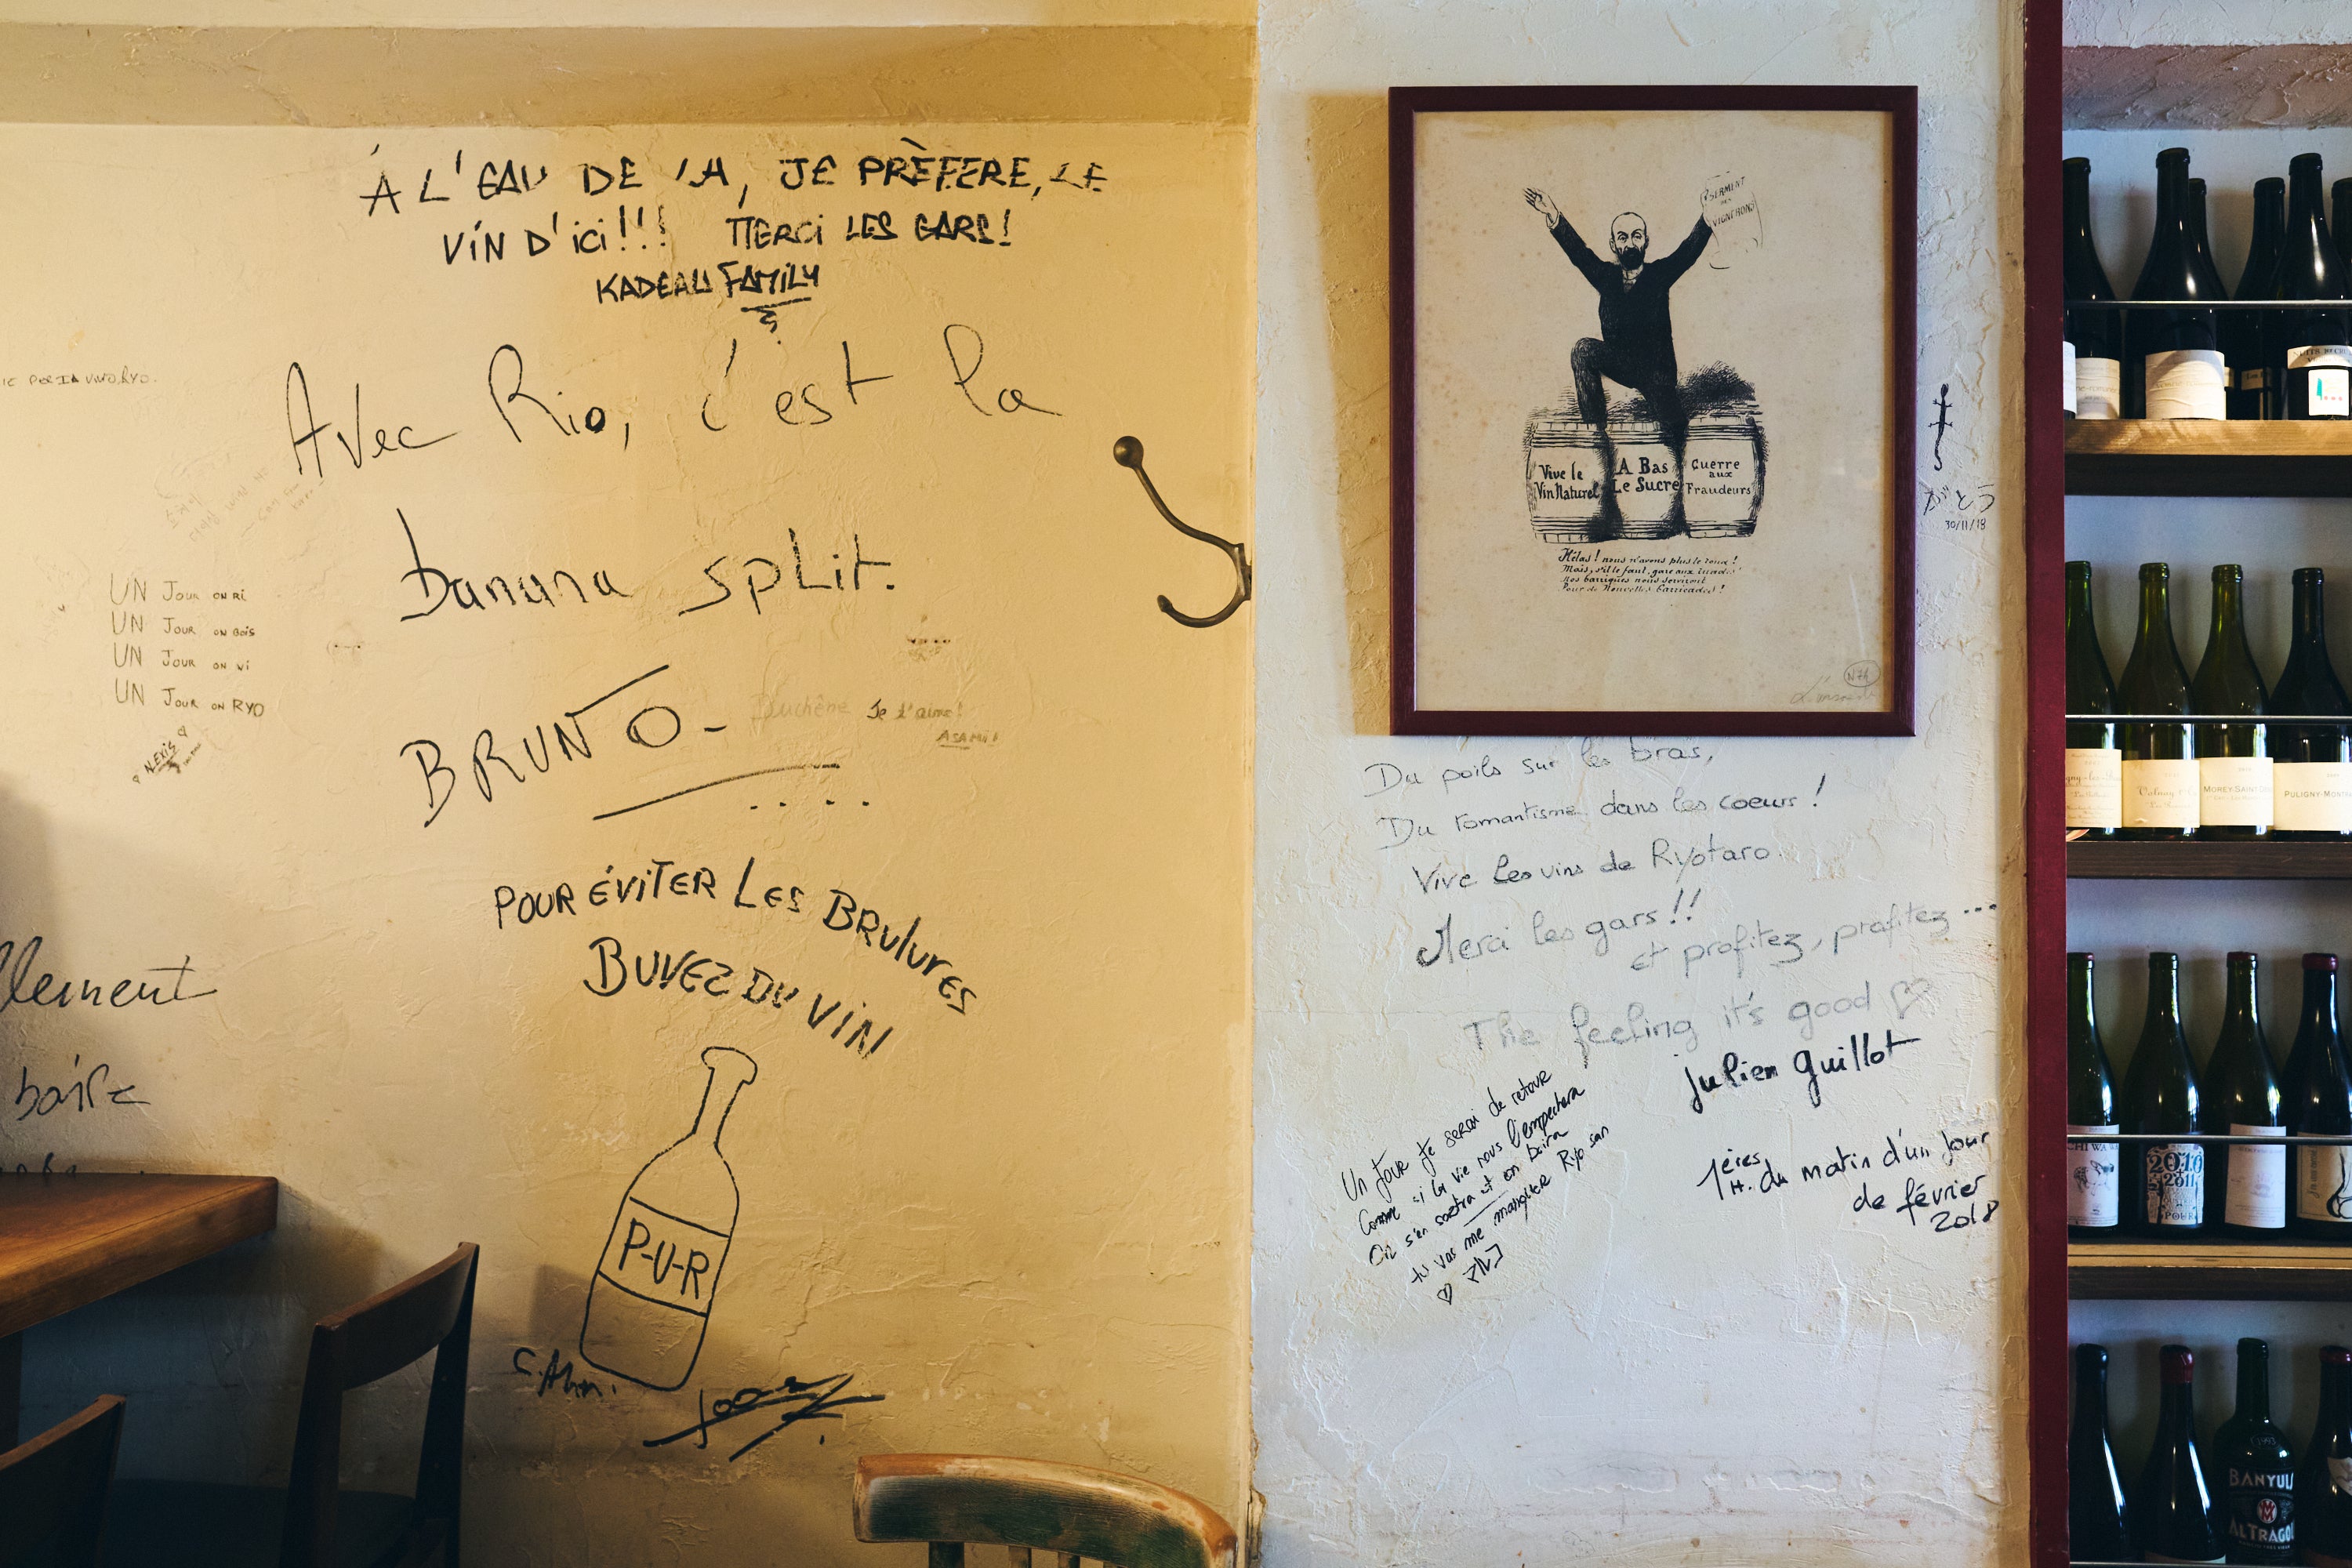 À L'EAU DE LÀ, JE PRÈFERE, LE
VIN D'ICI!!! MERCI LES GARS!
KADEAU FAMILY
Avec Rio, c'est la
banana split.
BRUNO-
UN JOUR ON RI
UN JOUR ON BOIS
UN JOUR ON VI
UN JOUR ON RYO
ALEXIS
Duchêne Je t'aime!
ASAMI!
POUR ÉVITER LES BRULURES
BUVEZ DU VIN
P-U-R
llement
boire
SERMENT
DES
VIGNERONS
Vive le
Vin Naturel
A Bas
Le Sucre
Guerre
aux
Fraudeurs
Hélas! nous n'avons plus le roux!
Mais, s'il le faut, gare aux
Nos barriques nous serviront
Pour de Nouvelles barricades!
N74
30/11/18
Du poils sur les bras,
Du romantisme dans les coeurs!
Vive les vins de Ryotaro.
Merci les gars!!
et profitez, profitez...
The feeling it's good
Julien Guillot
1ères H. du matin d'un jour
de février
2018
Un jour je serai de retour
Comme si la vie nous l'empechera
On s'en sortira et on boira
tu vas me manquer Ryo san
NUITS
Volnay
MOREY-SAINT-
PULIGNY-MONT
2010
2011
POUR
1993
BANYUL
ALTRAGO